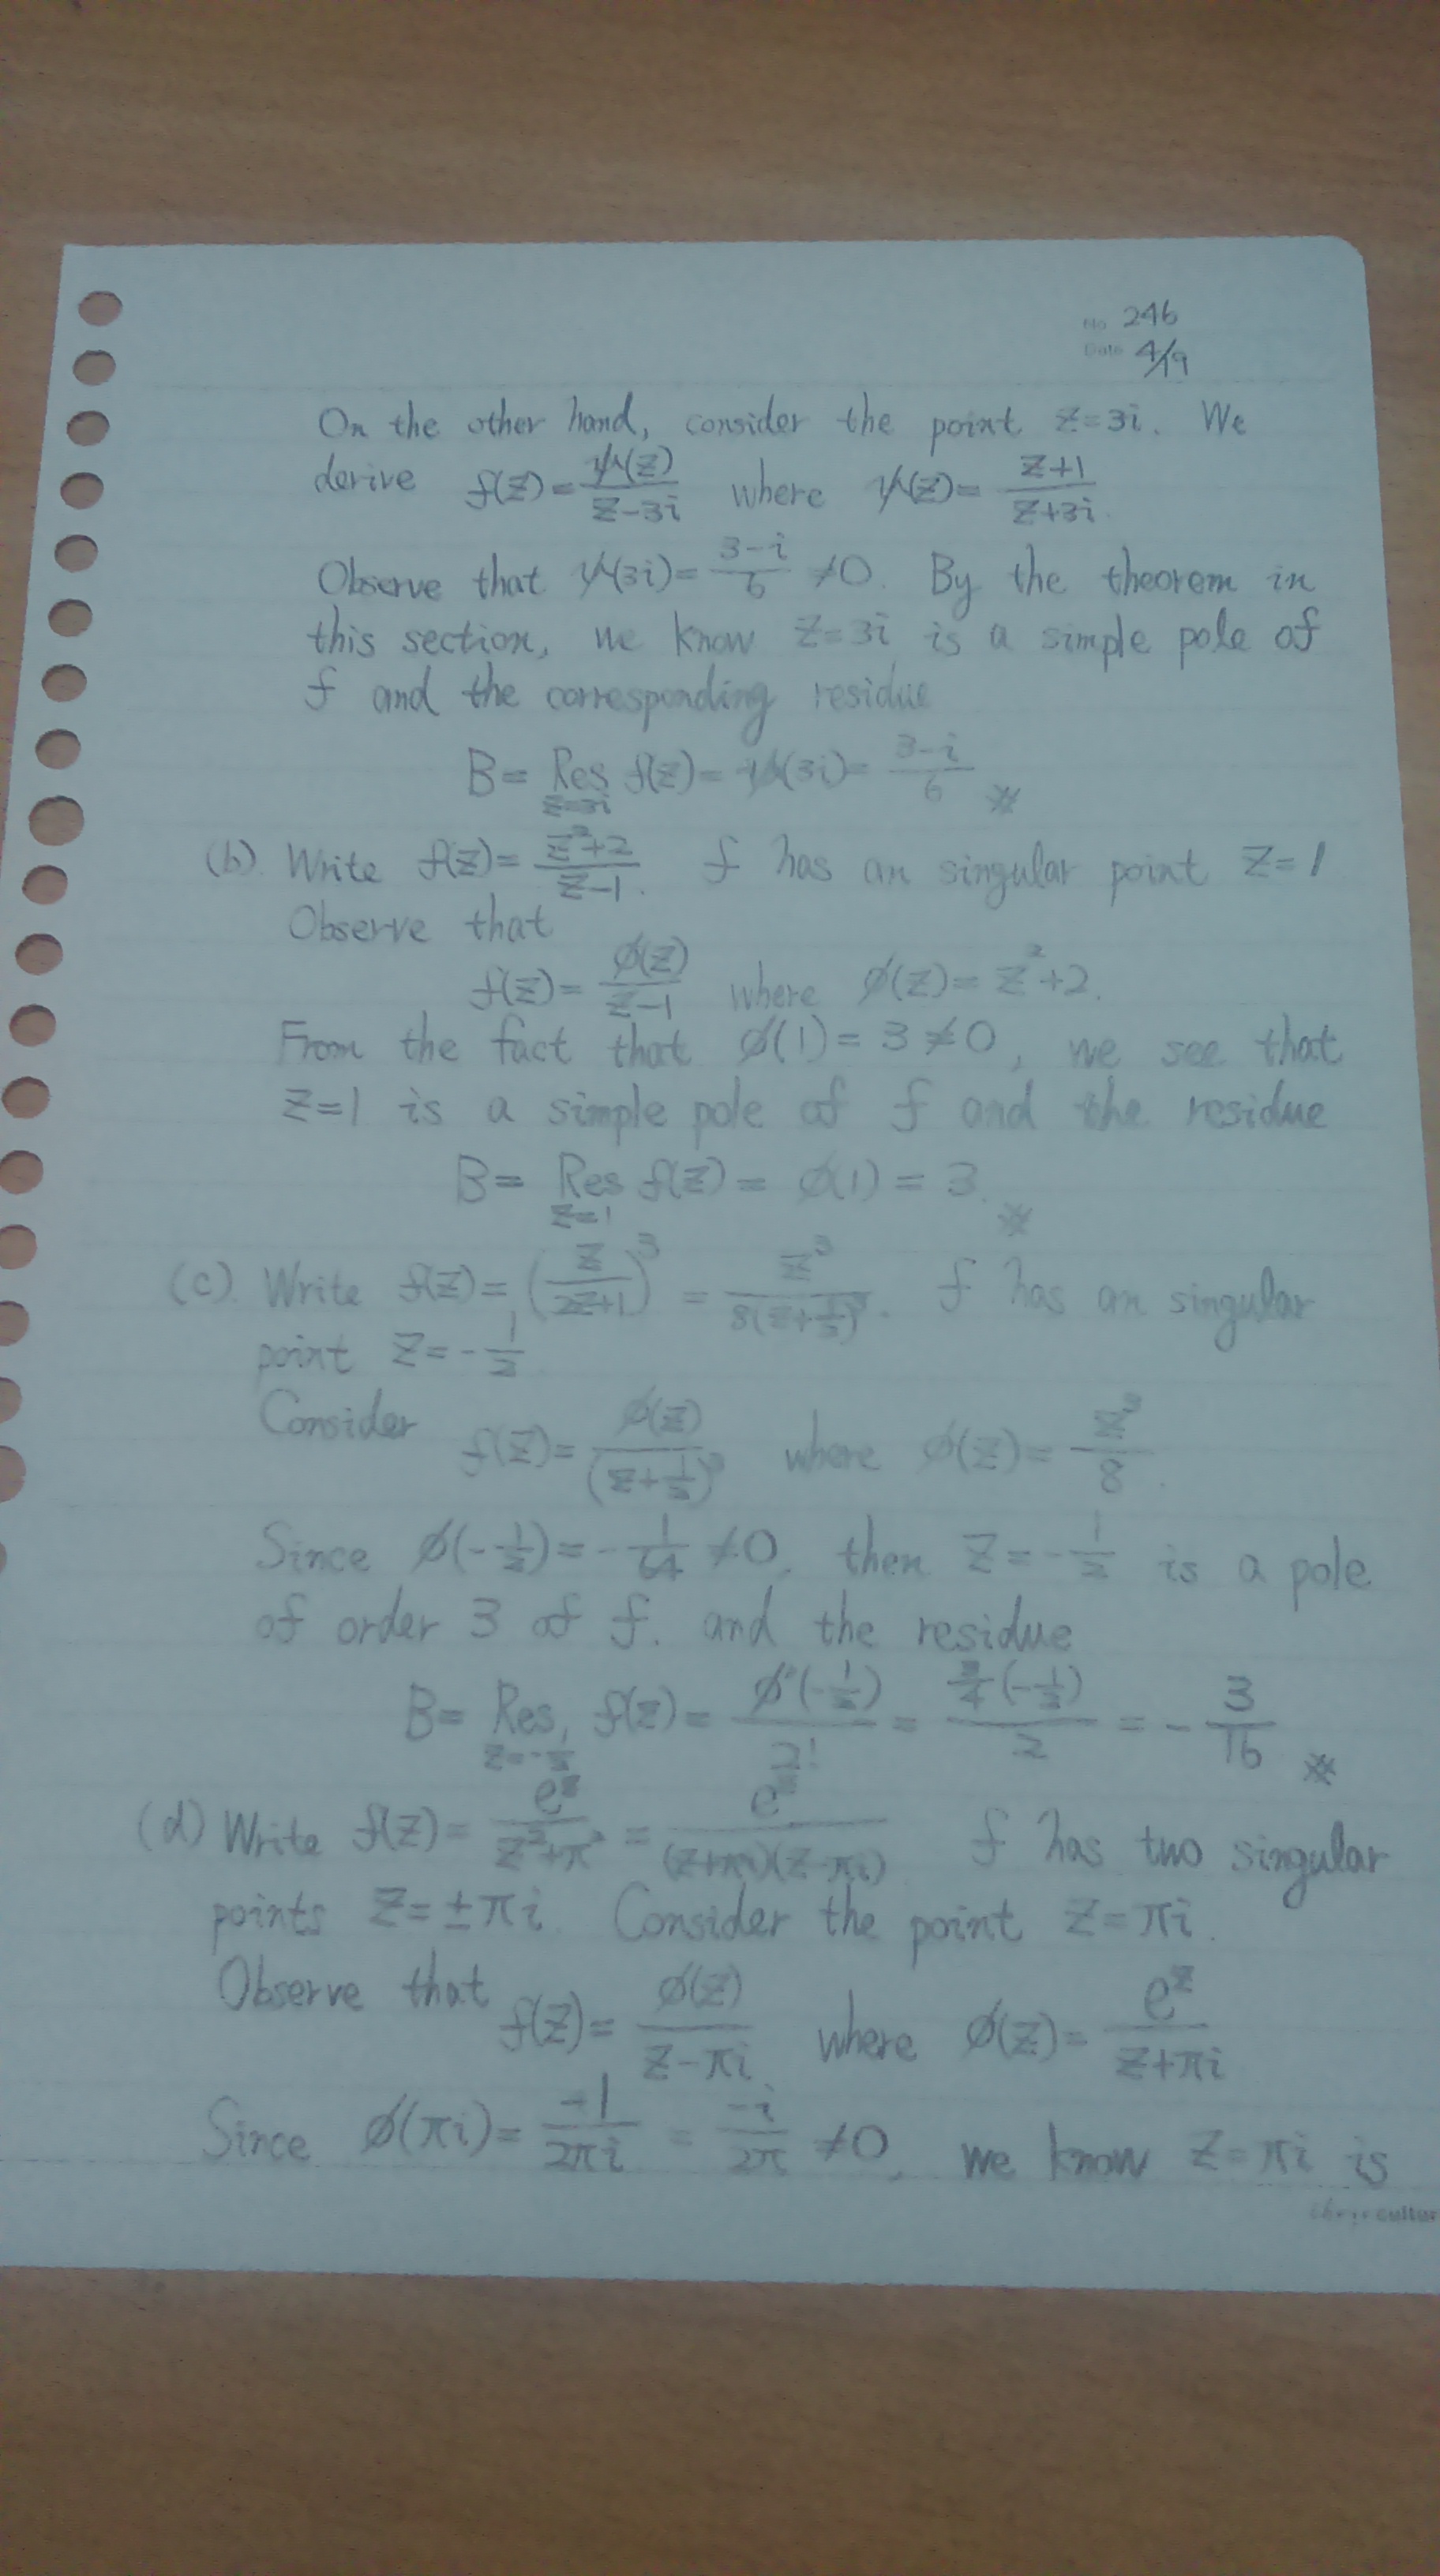 No. 246
Date 4/19
On the other hand, consider the point z=3i. We
derive f(z)=ψ(z)/(z-3i) where ψ(z)=(z+1)/(z+3i).
Observe that ψ(3i)=(3-i)/6 ≠0. By the theorem in
this section, we know z=3i is a simple pole of
f and the corresponding residue
B= Res_{z=3i} f(z)=ψ(3i)=(3-i)/6 ※
(b). Write f(z)=(z²+2)/(z-1). f has an singular point z=1
Observe that
f(z)=ϕ(z)/(z-1) where ϕ(z)=z²+2.
From the fact that ϕ(1)=3≠0, we see that
z=1 is a simple pole of f and the residue
B= Res_{z=1} f(z)= ϕ(1)=3. ※
(c). Write f(z)=(z/(2z+1))³ = z³/(8(z+1/2)³). f has an singular
point z=-1/2
Consider f(z)=ϕ(z)/(z+1/2)³ where ϕ(z)=z³/8.
Since ϕ(-1/2)=-1/64 ≠0, then z=-1/2 is a pole
of order 3 of f. and the residue
B= Res_{z=-1/2} f(z)= ϕ''(-1/2)/2! = (3/4)(-1/2)/2 = -3/16 ※
(d) Write f(z)= e^z/(z²+π²) = e^z/((z+πi)(z-πi)) f has two singular
points z=±πi. Consider the point z=πi.
Observe that f(z)=ϕ(z)/(z-πi) where ϕ(z)=e^z/(z+πi)
Since ϕ(πi)=-1/(2πi) = -i/(2π) ≠0, we know z=πi is